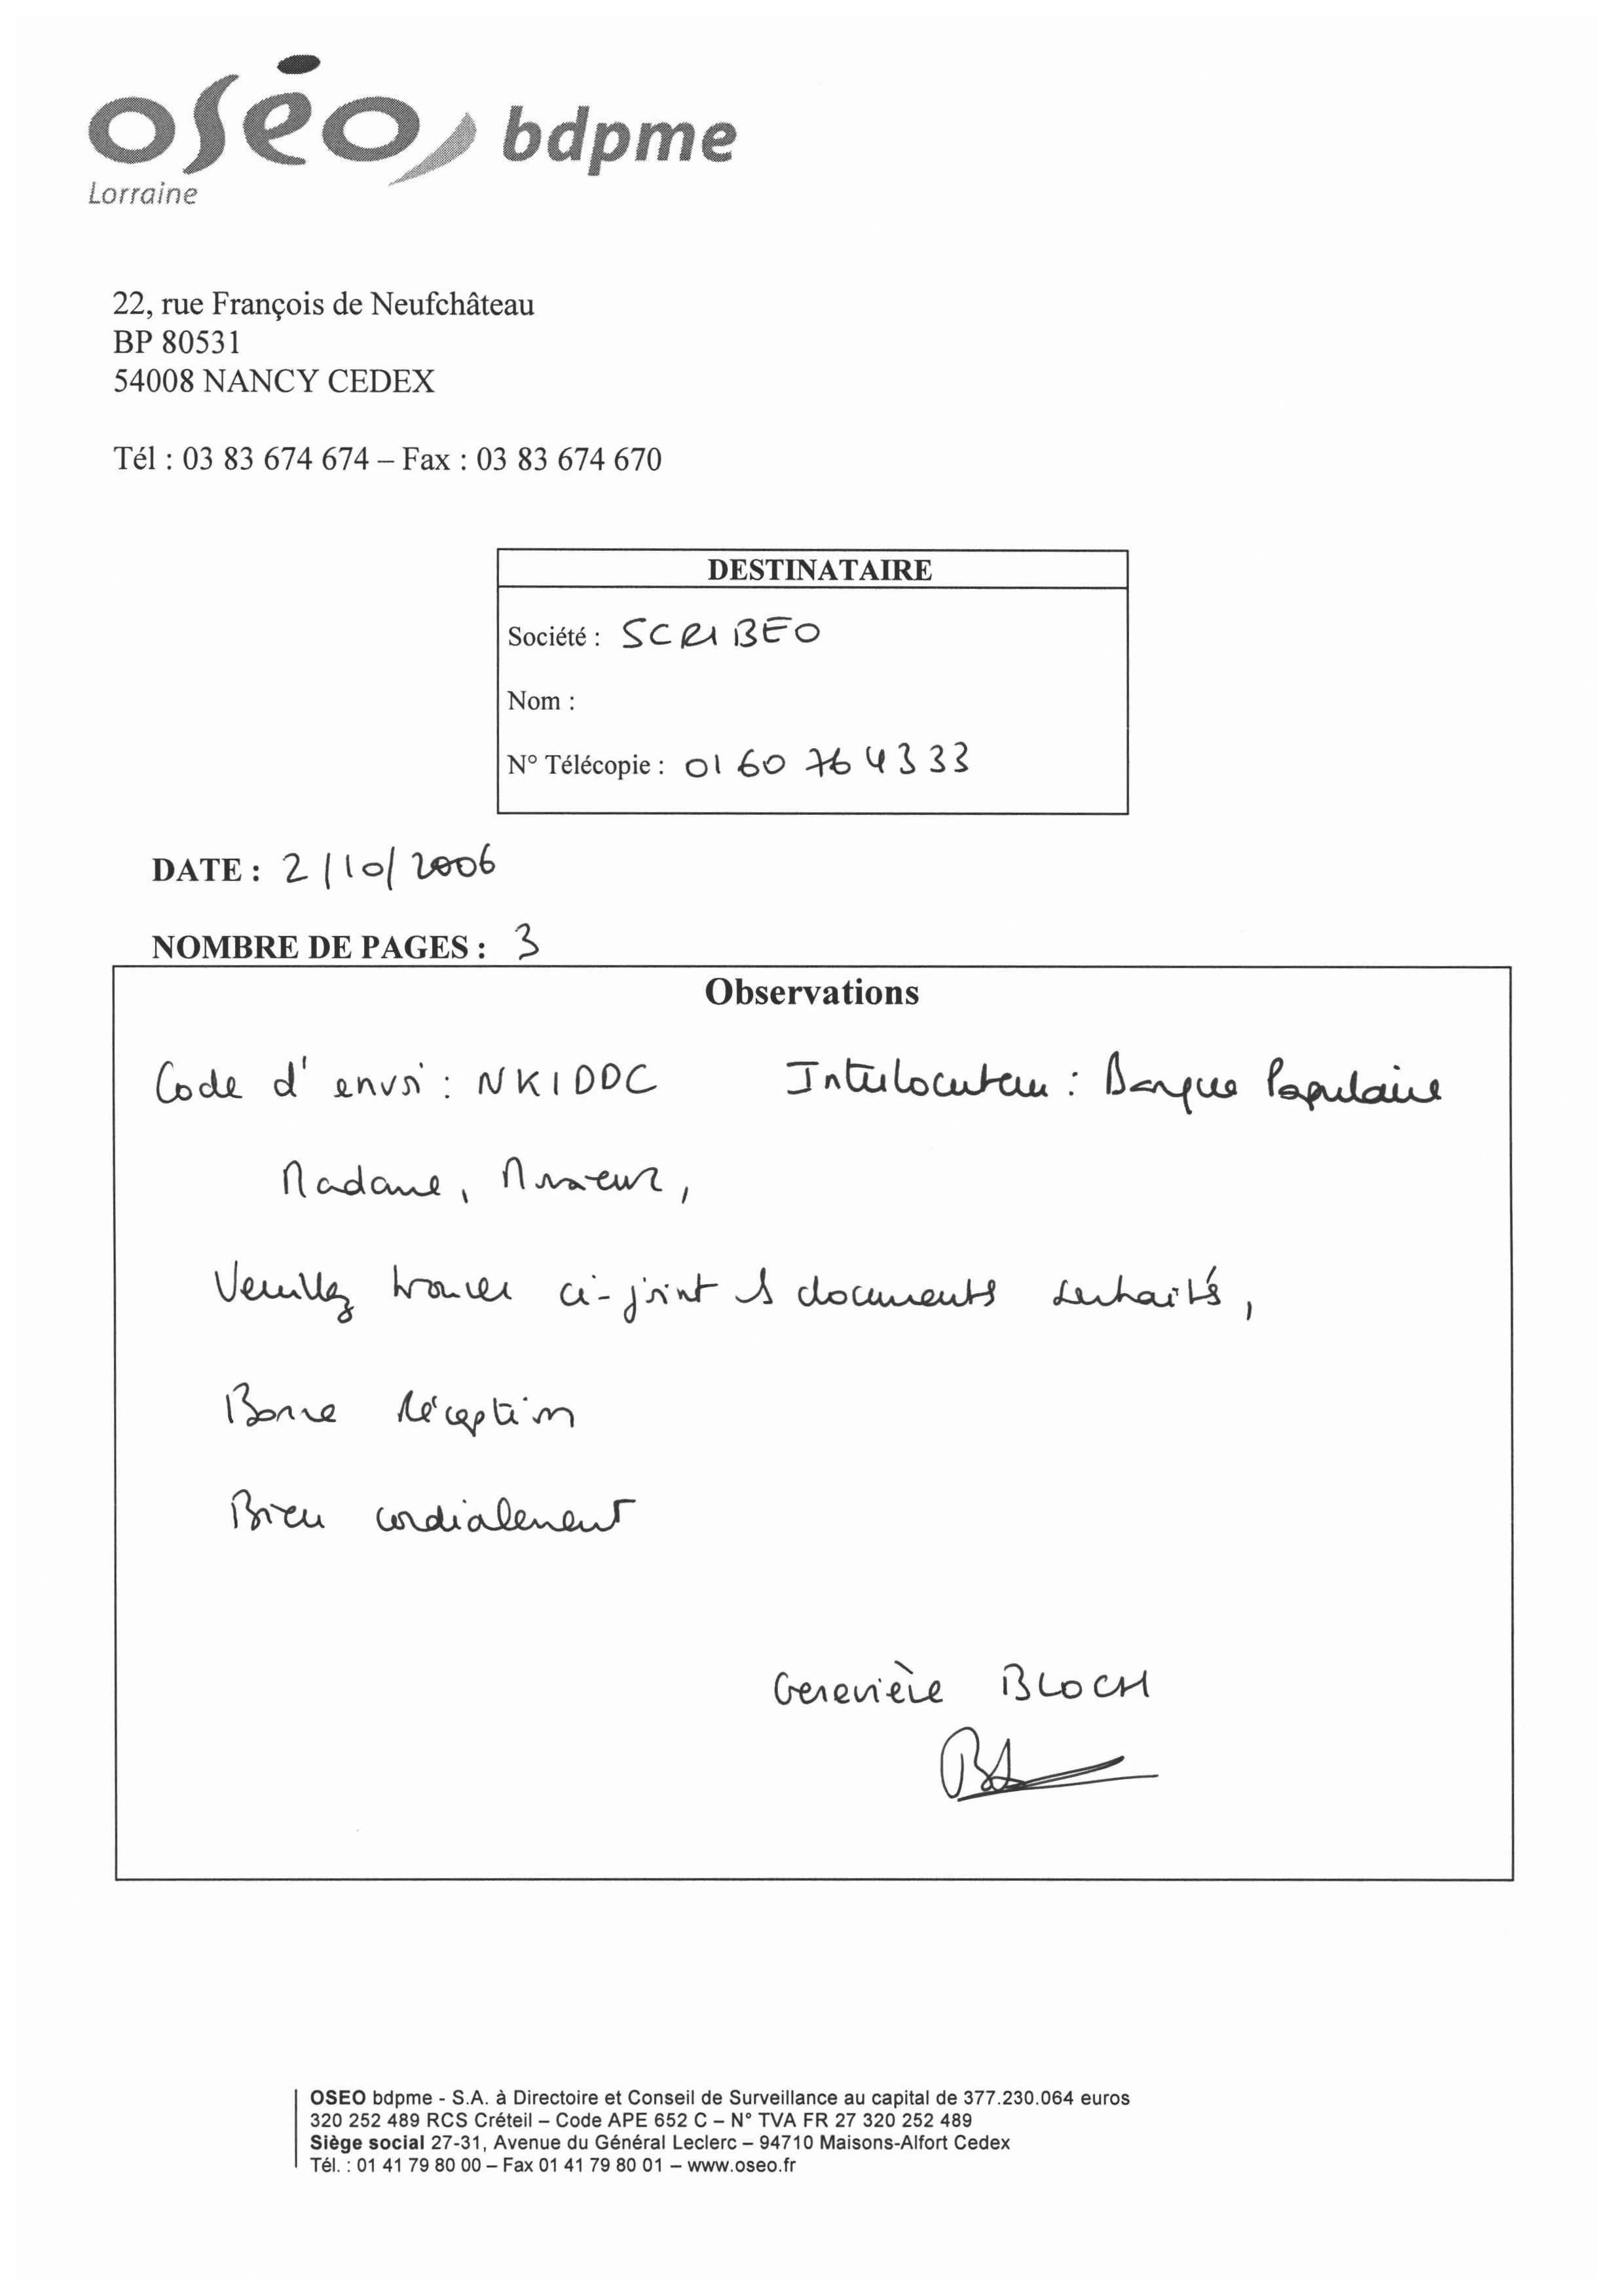 oséo bdpme
Lorraine
22, rue François de Neufchâteau
BP 80531
54008 NANCY CEDEX
Tél : 03 83 674 674 – Fax : 03 83 674 670
DESTINATAIRE
Société : SCRIBEO
Nom :
N° Télécopie : 01 60 76 43 33
DATE : 2/10/2006
NOMBRE DE PAGES : 3
Observations
Code d'envoi : NK1DDC Interlocuteur : Banque Populaire
Madame, Monsieur,
Veuillez trouver ci-joint les documents souhaités,
Bonne réception
Bien cordialement
Geneviève BLOCH
OSEO bdpme - S.A. à Directoire et Conseil de Surveillance au capital de 377.230.064 euros
320 252 489 RCS Créteil – Code APE 652 C – N° TVA FR 27 320 252 489
Siège social 27-31, Avenue du Général Leclerc – 94710 Maisons-Alfort Cedex
Tél. : 01 41 79 80 00 – Fax 01 41 79 80 01 – www.oseo.fr